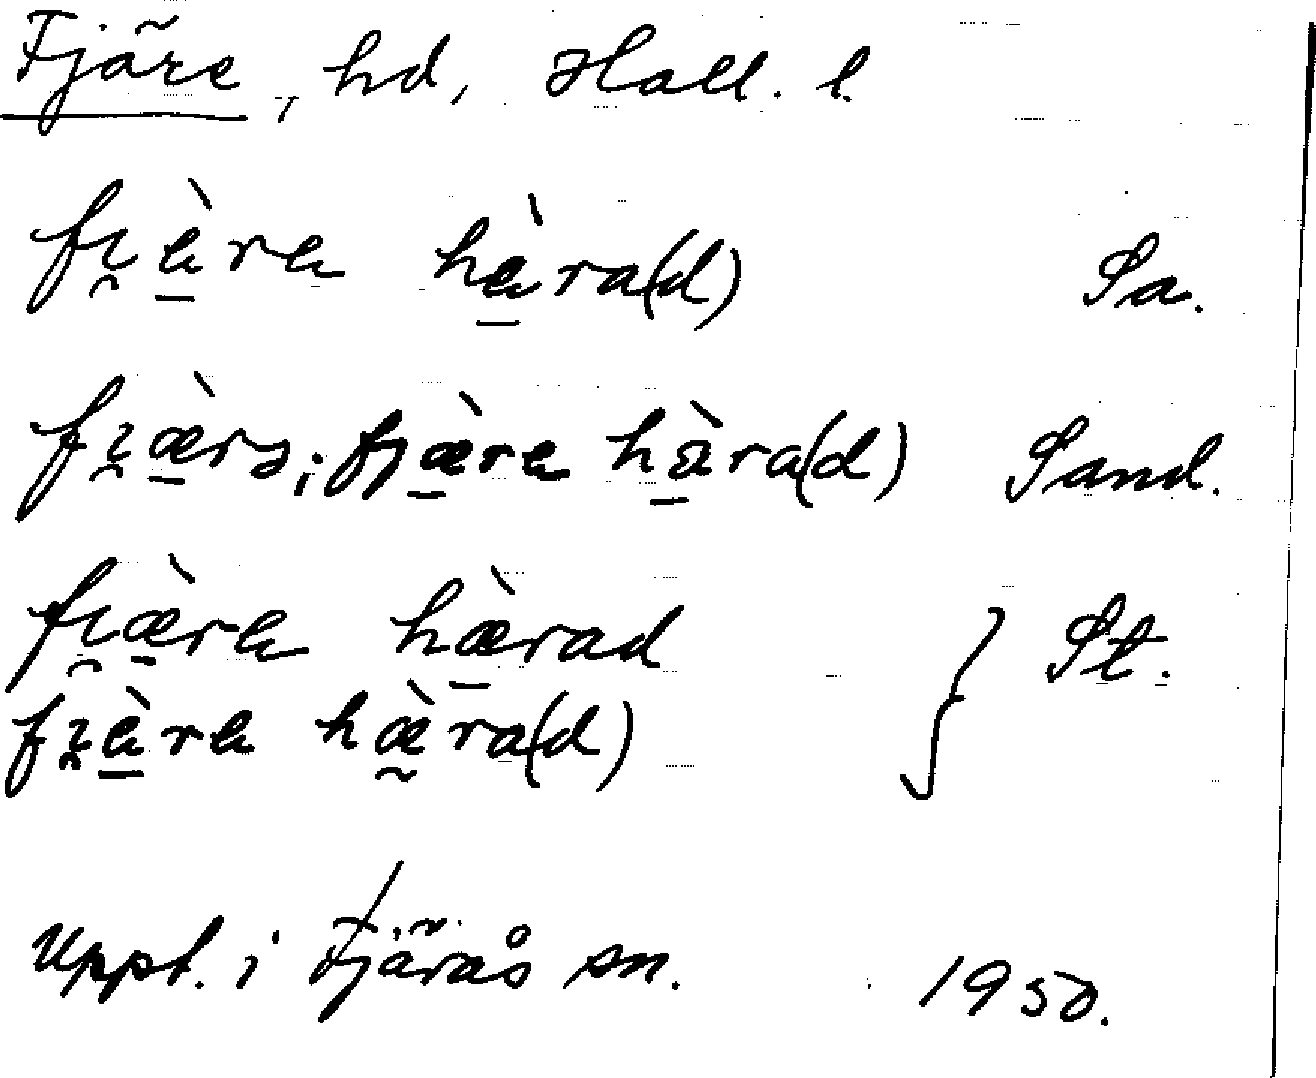 Fjäre, hd, Hall. l.
fi̯è̠ra hè̠ra(d) Sa.
fi̯æ̠̀rə; fjæ̠̀re hæ̠̀ra(d) Sand.
fi̯æ̠̀ra hæ̠̀rad } St.
fi̯è̠ra hæ̰̀ra(d)
Uppt. i Fjärås sn. 1950.